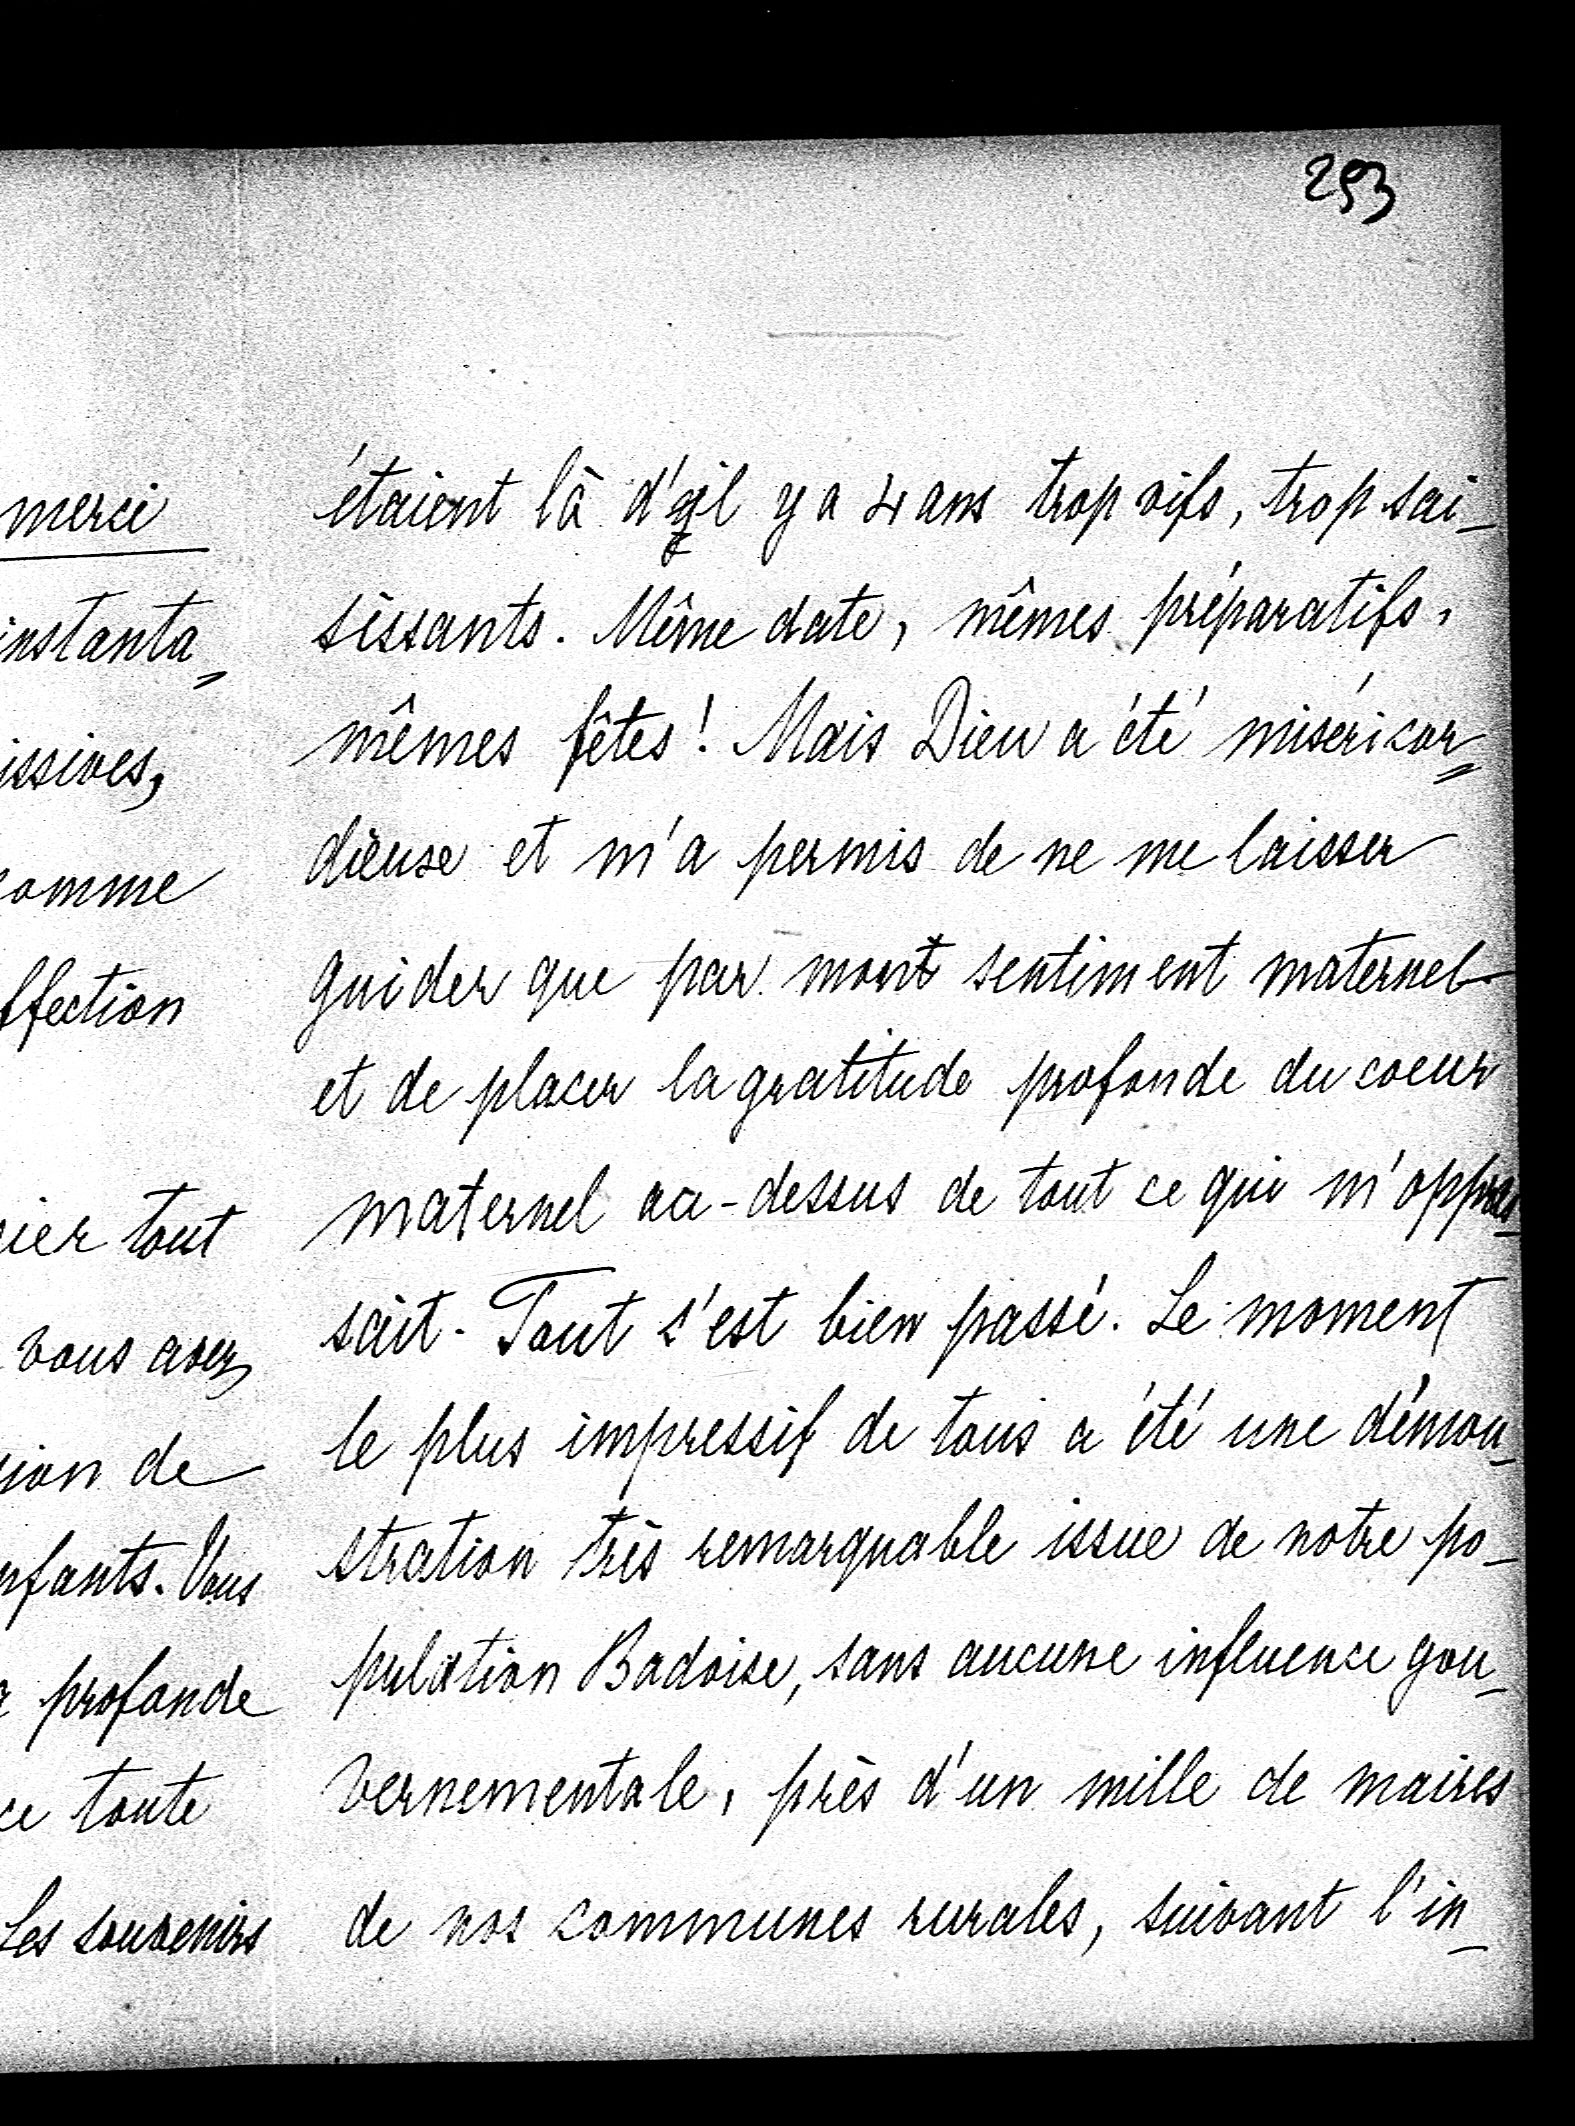 293
merci
instanta=
issives,
comme
ffection
cier tout
vous avez
sion de
nfants. Vous
profonde
ce toute
Les souvenirs
étaient là d'il y a 4 ans trop vifs, trop sai-
sissants. Même date, mêmes préparatifs,
mêmes fêtes! Mais Dieu a été miséricor=
dieuse et m'a permis de ne me laisser
guider que par mont sentiment maternel
et de placer la gratitude profonde du coeur
maternel au-dessus de tout ce qui m'oppres-
sait. Tout s'est bien passé. Le moment
le plus impressif de tous a été une démon-
stration très remarquable issue de notre po-
pulation Badoise, sans aucune influence gou-
vernementale, près d'un mille de maires
de nos communes rurales, suivant l'in-